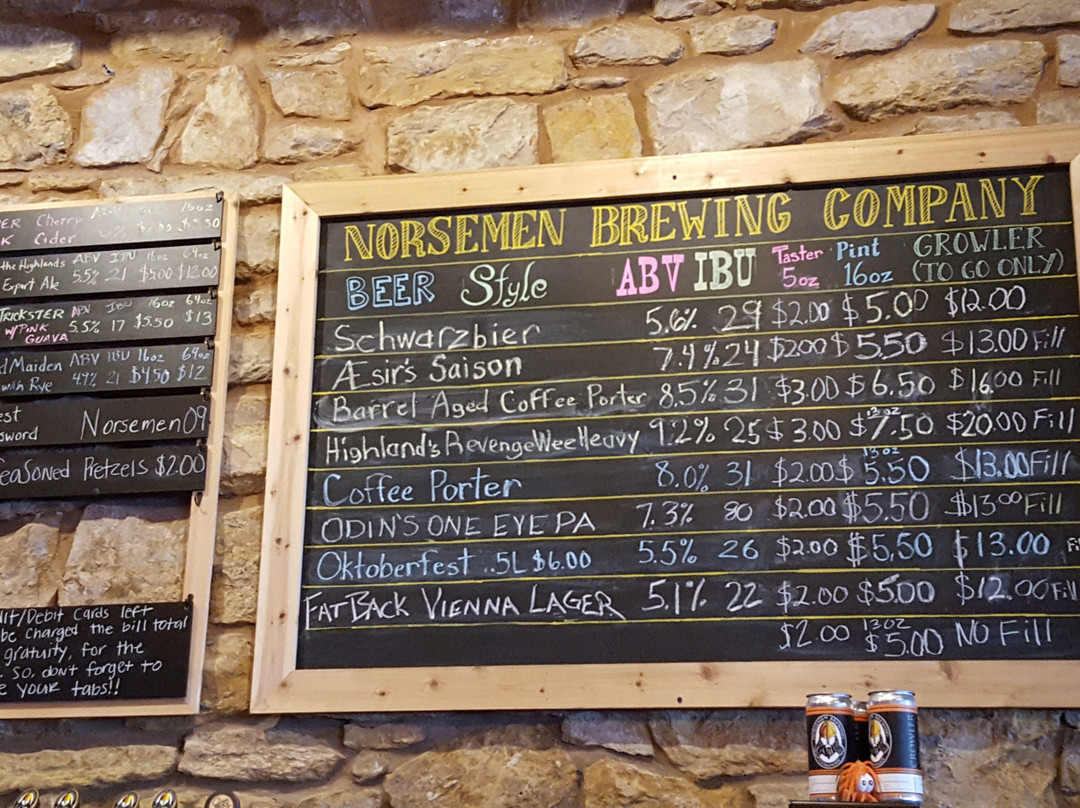 ER Cherry 16oz
K Cider $5.50
the Highlands ABV IBU 16oz 64oz
Export Ale 5.5% 21 $5.00 $12.00
TRICKSTER ABV IBU 16oz 64oz
W/PINK GUAVA 5.5% 17 $5.50 $13
d/Maiden ABV IBU 16oz 64oz
with Rye 4.9% 21 $4.50 $12
est
sword Norsemen09
easoned Pretzels $2.00
dit/Debit Cards left
be charged the bill total
gratuity, for the
. So, don't forget to
e your tabs!!
NORSEMEN BREWING COMPANY
BEER Style ABV IBU Taster 5oz Pint 16oz GROWLER (TO GO ONLY)
Schwarzbier 5.6% 29 $2.00 $5.00 $12.00
Æsir's Saison 7.4% 24 $2.00 $5.50 $13.00 Fill
Barrel Aged Coffee Porter 8.5% 31 $3.00 $6.50 $16.00 Fill
Highland's Revenge Wee Heavy 9.2% 25 $3.00 13oz $7.50 $20.00 Fill
Coffee Porter 8.0% 31 $2.00 13oz $5.50 $13.00 Fill
ODIN'S ONE EYE PA 7.3% 80 $2.00 $5.50 $13.00 Fill
Oktoberfest .5L $6.00 5.5% 26 $2.00 $5.50 $13.00 Fi
FATBACK VIENNA LAGER 5.1% 22 $2.00 $5.00 $12.00 Fill
$2.00 13oz $5.00 No Fill